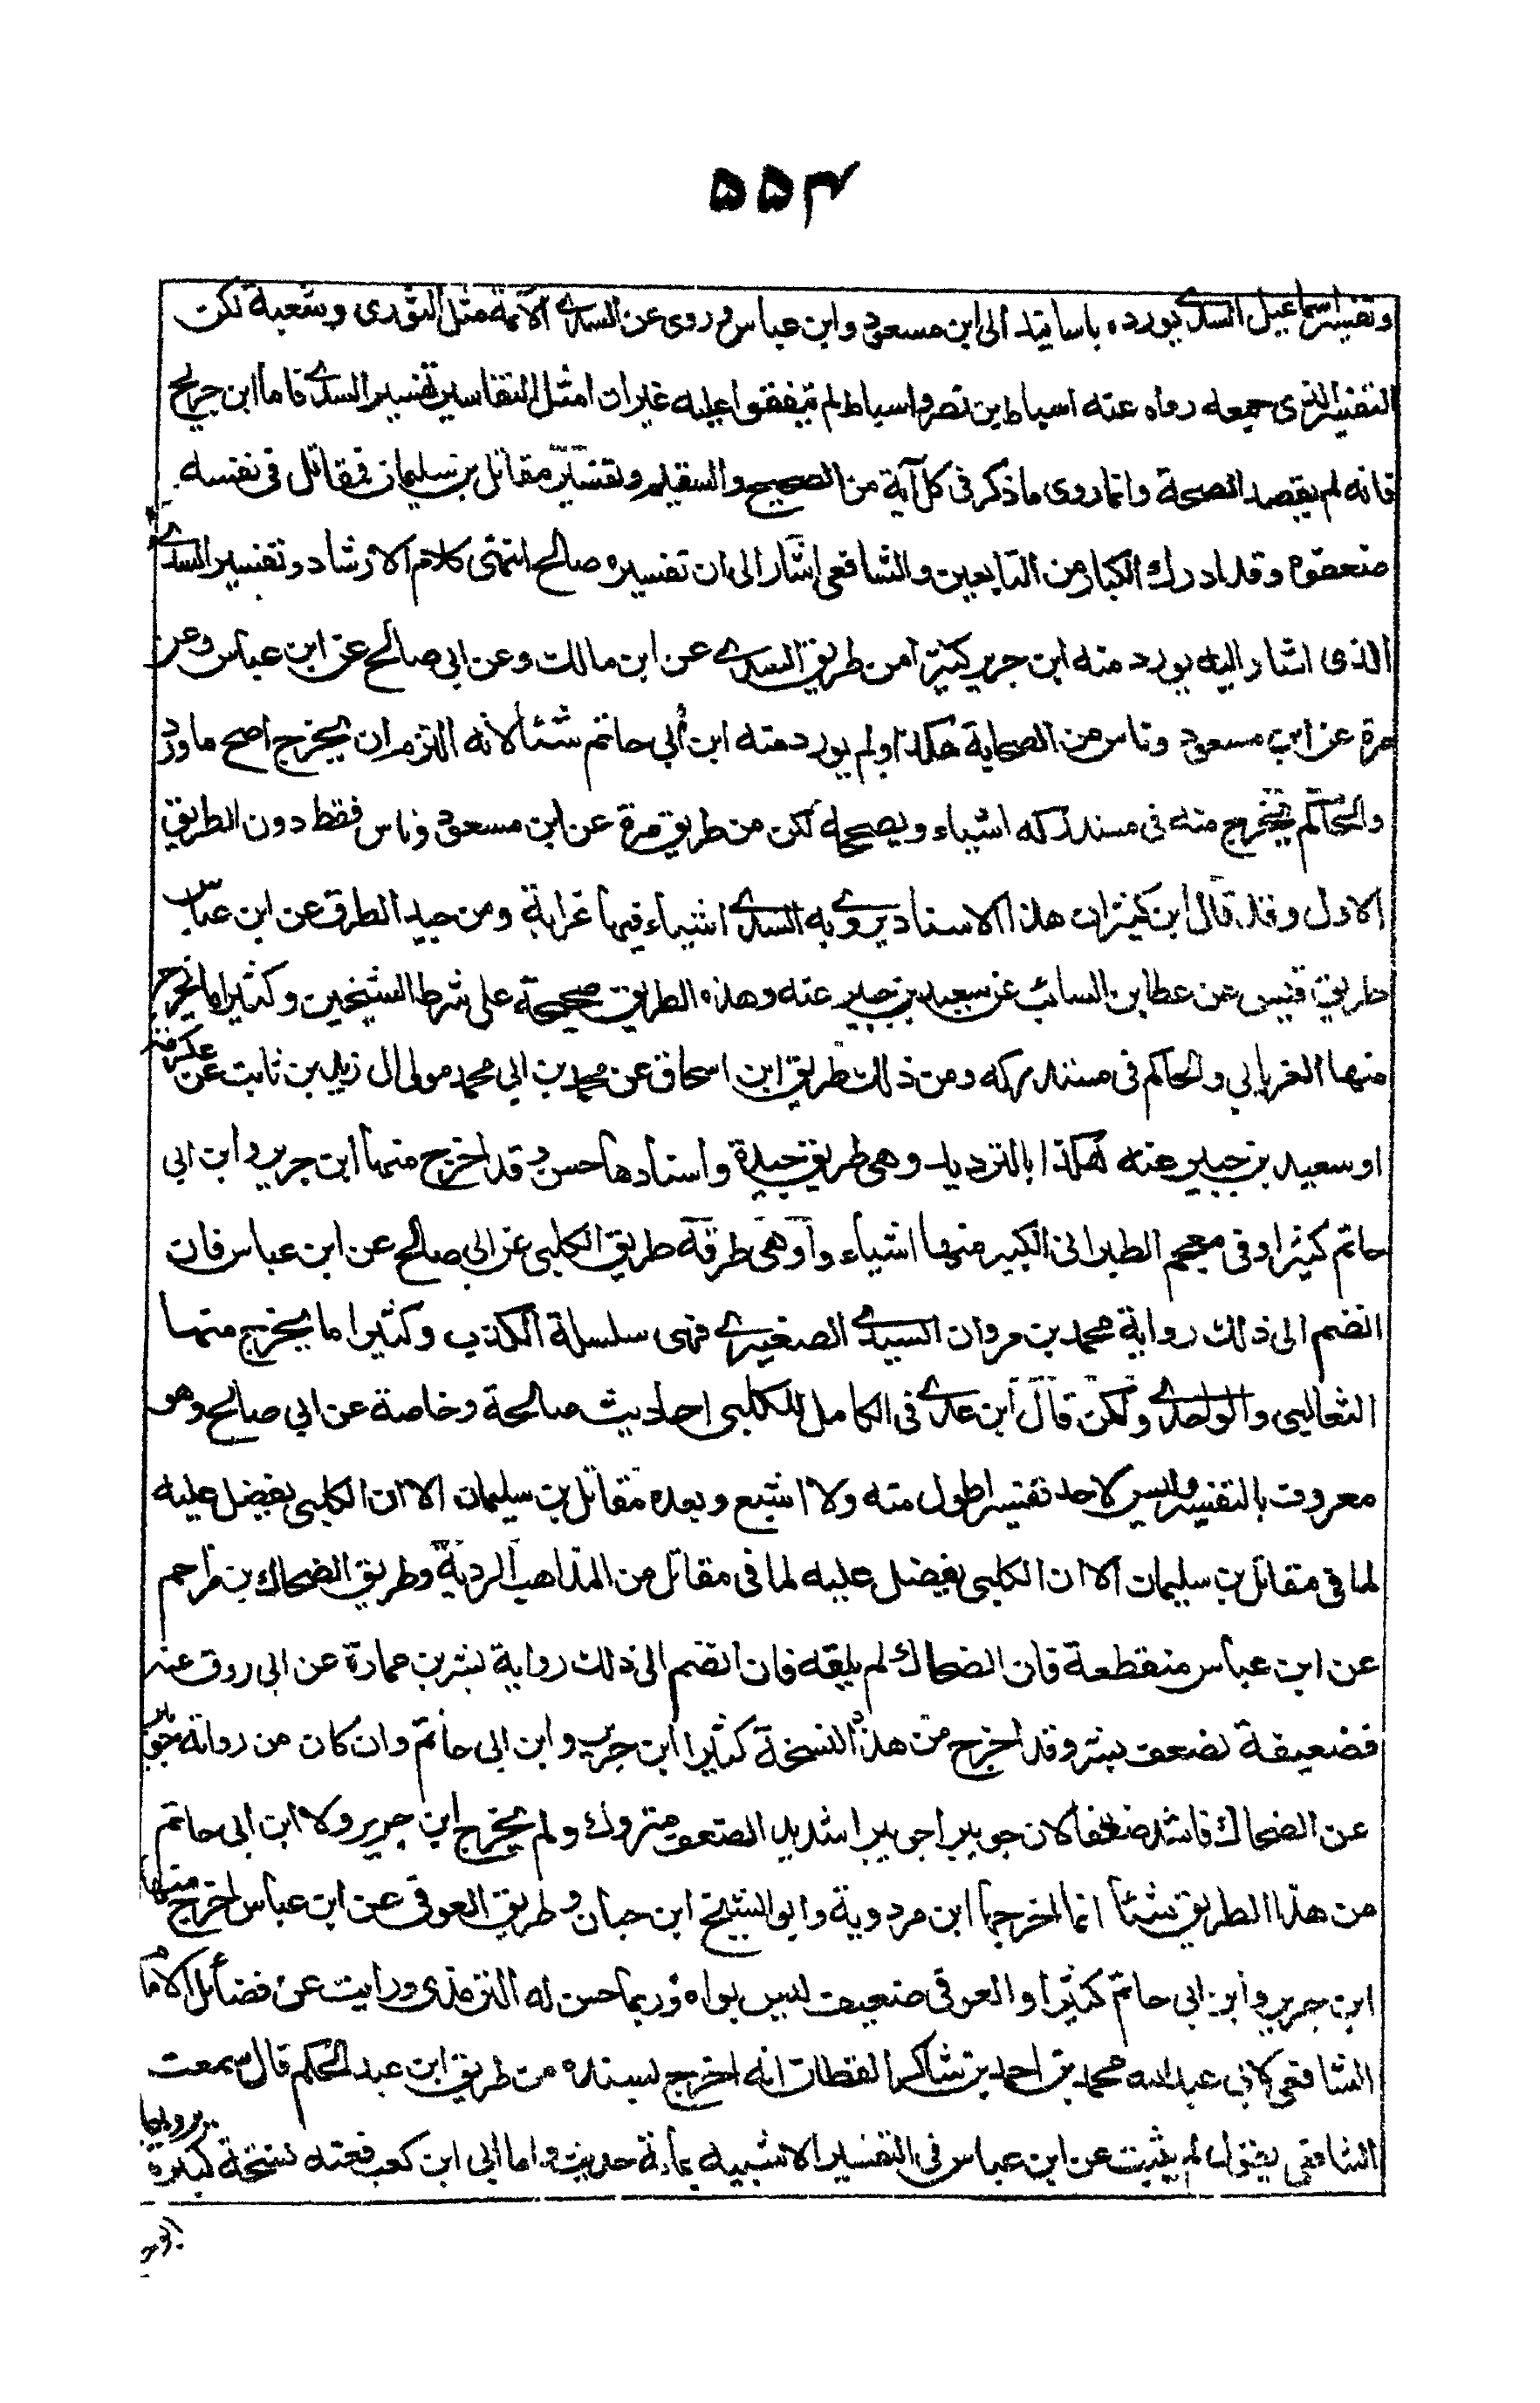 ۵۵۴
وتفسير اسماعيل السدي يورده باسانيد الى ابن مسعود وابن عباس و روى عن السدي الائمة مثل الثورى وشعبة لكن
التفسير الذى جمعه رواه عنه اسباط بن نصر و اسباط لم يتفقوا عليه غير ان امثل التفاسير تفسير السدي فاما ابن جريج
فانه لم يقصد الصحة وانما روى ما ذكر فى كل آية من الصحيح والسقيم وتفسير مقاتل بن سليمان فمقاتل فى نفسه
ضعفوه وقد ادرك الكبار من التابعين والشافعى اشار الى ان تفسيره صالح انتهى كلام الارشاد و تفسير السدي
الذى اشار اليه يورد منه ابن جرير كثيرا من طريق السدي عن ابن مالك وعن ابى صالح عن ابن عباس وعن
مرة عن ابن مسعود وناس من الصحابة هكذا ولم يورد منه ابن أبى حاتم شئا لانه التزم ان يخرج اصح ما ورد
والحاكم يخرج منه فى مستدركه اشياء ويصححه لكن من طريق مرة عن ابن مسعود وناس فقط دون الطريق
الاول وقد قال ابن كثير ان هذا الاسناد يروي به السدي اشياء فيها غرابة ومن جيد الطرق عن ابن عباس
طريق قيس عن عطا بن السائب عن سعيد بن جبير عنه وهذه الطريق صحيحة على شرط الشيخين وكثيرا ما يخرج
منها الفريابي والحاكم فى مستدركه ومن ذلك طريق ابن اسحاق عن محمد بن ابي محمد مولى ال زيد بن ثابت عن عكرمة
او سعيد بن جبير عنه هكذا بالترديد وهى طريق جيدة واسنادها حسن وقد اخرج منها ابن جرير وابن ابى
حاتم كثيرا وفى معجم الطبرانى الكبير منها اشياء واوهى طرقه طريق الكلبى عن ابى صالح عن ابن عباس فان
انضم الى ذلك رواية محمد بن مروان السدي الصغير فهى سلسلة الكذب وكثيرا ما يخرج منها
الثعالبى والواحدي ولكن قال ابن عدي فى الكامل للكلبى احاديث صالحة وخاصة عن ابى صالح وهو
معروف بالتفسير وليس لاحد تفسير اطول منه ولا اشبع وبعده مقاتل بن سليمان الا ان الكلبى يفضل عليه
لما فى مقاتل بن سليمان الا ان الكلبى يفضل عليه لما فى مقاتل من المذاهب الردية وطريق الضحاك بن مزاحم
عن ابن عباس منقطعة فان الضحاك لم يلقه فان انضم الى ذلك رواية بشر بن عمارة عن ابى روق عنه
فضعيفة لضعف بشر وقد اخرج من هذه النسخة كثيرا ابن جرير وابن ابى حاتم وان كان من رواية جويبر
عن الضحاك فاشد ضعفا لان جويبرا جويبرا شديد الضعف متروك ولم يخرج ابن جرير ولا ابن ابى حاتم
من هذا الطريق شئا انما اخرجها ابن مردوية وابو الشيخ ابن حبان و طريق العوفى عن ابن عباس اخرج منها
ابن جرير وابن ابى حاتم كثيرا والعوفى ضعيف ليس بواه وربما حسن له الترمذى ورايت عن فضائل الامام
الشافعى لابى عبد الله محمد بن احمد بن شاكر القطان انه اخرج بسنده من طريق ابن عبد الحكم قال سمعت
الشافعى يقول لم يثبت عن ابن عباس فى التفسير الا شبيه بمائة حديث واما أبى ابن كعب فعنه نسخة كبيرة يرويها